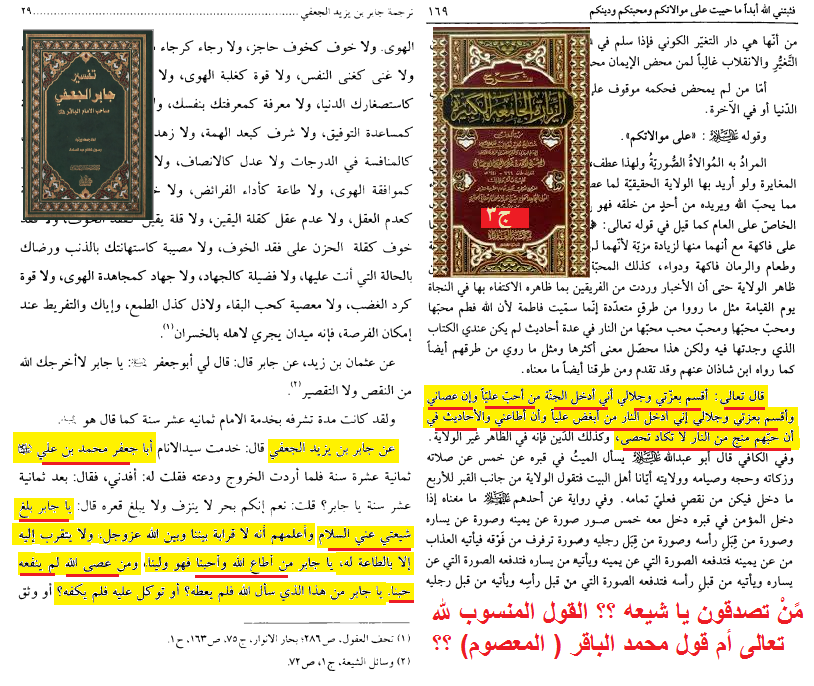 فثبتني الله أبداً ما حييت على موالاتكم ومحبتكم ودينكم
١٦٩
من أنّها هي دار التغيّر الكوني فإذا سلم في
التَّغيُّر والانقلاب غالباً لمن محض الإيمان مح
أمّا من لم يمحض فحكمه موقوف على
الدّنيا أو في الآخرة.
وقوله عليه السلام : «على موالاتكم».
المرادُ به المُوالاةُ الصُّوريَّةُ ولهذا عطف
المغايرة ولو أريد بها الولاية الحقيقيّة لما عط
مما يحبّ الله ويريده من أحدٍ من خلقه فهو
الخاصّ على العام كما قيل في قوله تعالى:
على فاكهة مع أنهما منها لزيادة مزيّة لأنّهما
وطعام والرمان فاكهة ودواء، كذلك المحبّة
ظاهر الولاية حتى أن الأخبار وردت من الفريقين بما ظاهره الاكتفاء بها في النجاة
يوم القيامة مثل ما رووا من طرقٍ متعدّدة إنّما سمّيت فاطمة لأن الله فطم محبّها
ومحبّ محبّها ومحبّ محب محبّها من النار في عدة أحاديث لم يكن عندي الكتاب
الذي وجدتها فيه ولكن هذا محصّل معنى أكثرها ومثل ما روي من طرقهم أيضاً
كما رواه ابن شاذان عنهم وقد تقدم ومن طرقنا أيضاً ما معناه.
قال تعالى: أقسم بعزّتي وجلالي أني أدخل الجنّة من أحبّ عليّاً وإن عصاني
وأقسم بعزتي وجلالي إني أدخل النار من أبغض علياً وأن أطاعني والأحاديث في
أن حبّهم منج من النار لا تكاد تحصى، وكذلك الدّين فإنه في الظاهر غير الولاية.
وفي الكافي قال أبو عبدالله عليه السلام يسأل الميتُ في قبره عن خمس عن صلاته
وزكاته وحجه وصيامه وولايته أيّانا أهل البيت فتقول الولاية من جانب القبر للأربع
ما دخل فيكن من نقصٍ فعليّ تمامه. وفي رواية عن أحدهم عليهم السلام ما معناه إذا
دخل المؤمن في قبره دخل معه خمس صور صورة عن يمينه وصورة عن يساره
وصورة من قِبَل رأسه وصورة من قِبَل رجليه وصورة ترفرف من فَوْقه فيأتيه العذاب
من عن يمينه فتدفعه الصورة التي عن يمينه ويأتيه من يساره فتدفعه الصورة التي عن
يساره ويأتيه من قبل رأسه فتدفعه الصورة التي من قبل رأسِه ويأتيه من قبل رجليه
شرح
الزيارة الجامعة الكبيرة
ج٣
مَنْ تصدقون يا شيعه ؟؟ القول المنسوب لله
تعالى أم قول محمد الباقر ( المعصوم) ؟؟
ترجمة جابر بن يزيد الجعفي
٢٩
الهوى. ولا خوف كخوف حاجز، ولا رجاء كرجاء
ولا غنى كغنى النفس، ولا قوة كغلبة الهوى، ولا
كاستصغارك الدنيا، ولا معرفة كمعرفتك بنفسك،
كمساعدة التوفيق، ولا شرف كبعد الهمة، ولا زهد
كالمنافسة في الدرجات ولا عدل كالانصاف، ولا
كموافقة الهوى، ولا طاعة كأداء الفرائض، ولا خ
كعدم العقل، ولا عدم عقل كقلة اليقين، ولا قلة يقين كفقد الخوف، ولا فقد
خوف كقلة الحزن على فقد الخوف، ولا مصيبة كاستهانتك بالذنب ورضاك
بالحالة التي أنت عليها، ولا فضيلة كالجهاد، ولا جهاد كمجاهدة الهوى، ولا قوة
كرد الغضب، ولا معصية كحب البقاء ولاذل كذل الطمع، وإياك والتفريط عند
إمكان الفرصة، فإنه ميدان يجري لاهله بالخسران(١).
عن عثمان بن زيد، عن جابر قال: قال لي أبوجعفر عليه السلام: يا جابر لاأخرجك الله
من النقص ولا التقصير(٢).
ولقد كانت مدة تشرفه بخدمة الامام ثمانيه عشر سنة كما قال هو
عن جابر بن يزيد الجعفي قال: خدمت سيدالانام أبا جعفر محمد بن علي عليه السلام
ثمانية عشرة سنة فلما أردت الخروج ودعته فقلت له: أفدني، فقال: بعد ثمانية
عشر سنة يا جابر؟ قلت: نعم إنكم بحر لا ينزف ولا يبلغ قعره قال: يا جابر بلغ
شيعتي عني السلام وأعلمهم أنه لا قرابة بيننا وبين الله عزوجل. ولا يتقرب إليه
إلا بالطاعة له، يا جابر من أطاع الله وأحبنا فهو ولينا، ومن عصى الله لم ينفعه
حبنا. يا جابر من هذا الذي سأل الله فلم يعطه؟ أو توكل عليه فلم يكفه؟ أو وثق
(١) تحف العقول، ص٢٨٦؛ بحار الانوار، ج٧٥، ص١٦٣، ح١.
(٢) وسائل الشيعة، ج١، ص٧٢.
تفسير
جابر الجعفي
صاحب الامام الباقر